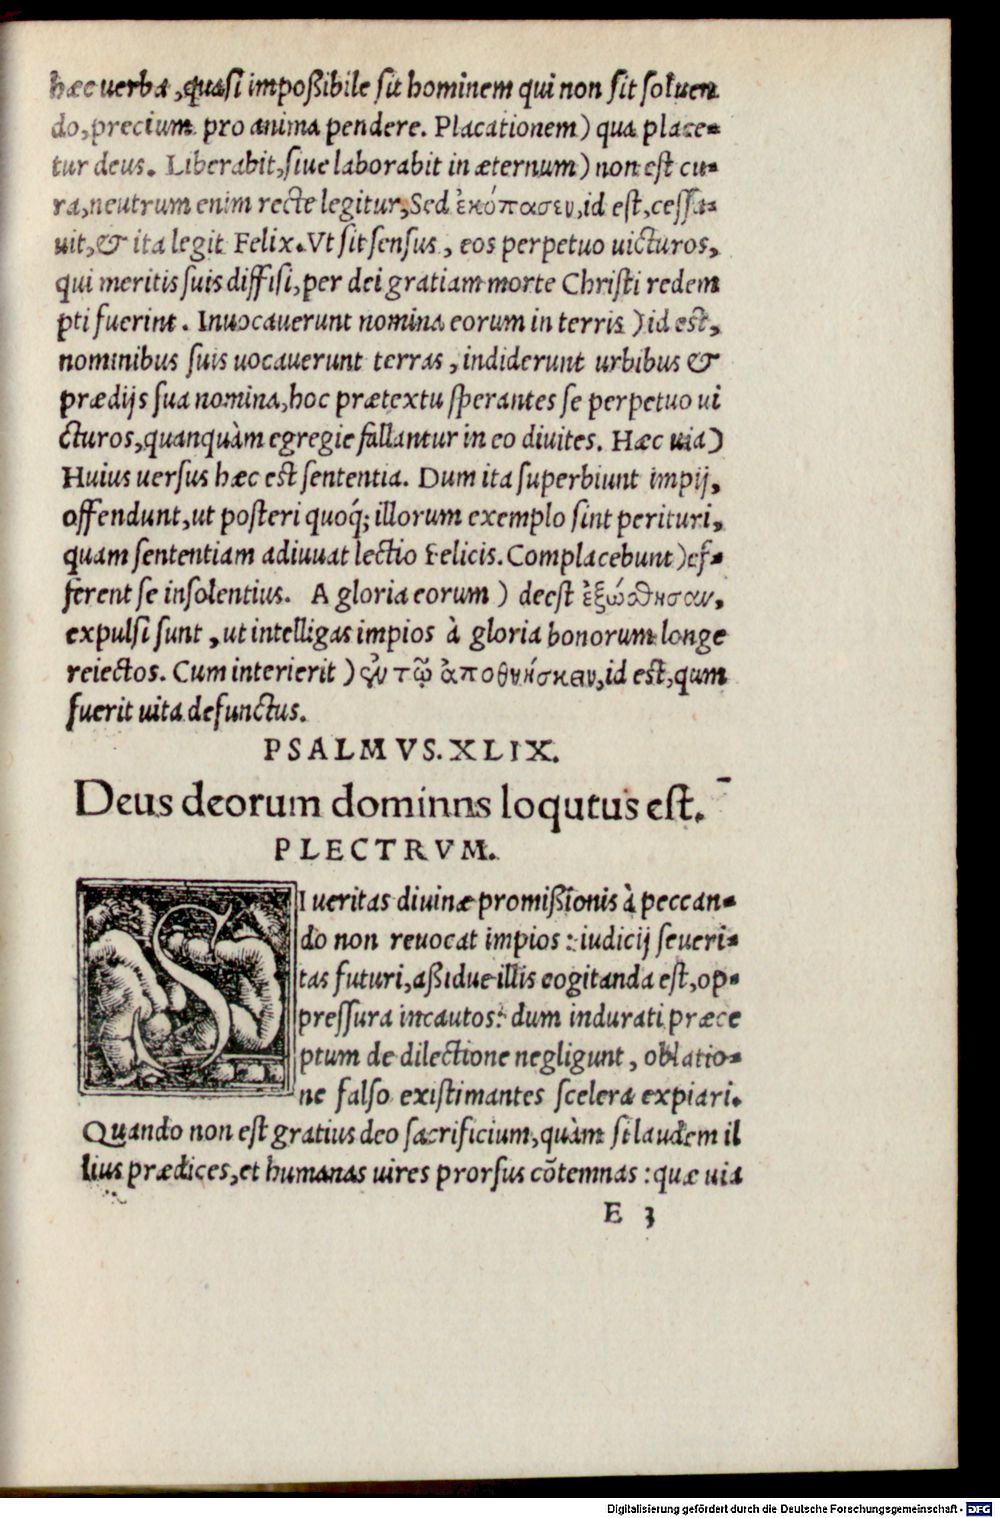 hæc uerba, quasi impoßibile sit hominem qui non sit soluen
do, precium pro anima pendere. Placationem) qua place-
tur deus. Liberabit, siue laborabit in æternum) non est cu-
ra, neutrum enim recte legitur, Sed ἐκόπασεν, id est, cessa-
uit, & ita legit Felix. Vt sit sensus, eos perpetuo uicturos,
qui meritis suis diffisi, per dei gratiam morte Christi redem
pti fuerint. Inuocauerunt nomina eorum in terris) id est,
nominibus suis uocauerunt terras, indiderunt urbibus &
prædijs sua nomina, hoc prætextu sperantes se perpetuo ui
cturos, quanquàm egregie fallantur in eo diuites. Hæc uia)
Huius uersus hæc est sententia. Dum ita superbiunt impij,
offendunt, ut posteri quoq; illorum exemplo sint perituri,
quam sententiam adiuuat lectio Felicis. Complacebunt) ef-
ferent se insolentius. A gloria eorum) deest ἐξώσθησαν,
expulsi sunt, ut intelligas impios à gloria bonorum longe
reiectos. Cum interierit) ἐν τῷ ἀποθνήσκειν, id est, qum
fuerit uita defunctus.
PSALMVS. XLIX.
Deus deorum dominns loqutus est.
PLECTRVM.
SI ueritas diuinæ promißionis à peccan-
do non reuocat impios: iudicij seueri-
tas futuri, aßidue illis cogitanda est, op-
pressura incautos: dum indurati præce
ptum de dilectione negligunt, oblatio-
ne falso existimantes scelera expiari.
Quando non est gratius deo sacrificium, quàm si laudem il
lius prædices, et humanas uires prorsus cõtemnas: quæ uia
E 3
Digitalisierung gefördert durch die Deutsche Forschungsgemeinschaft - DFG